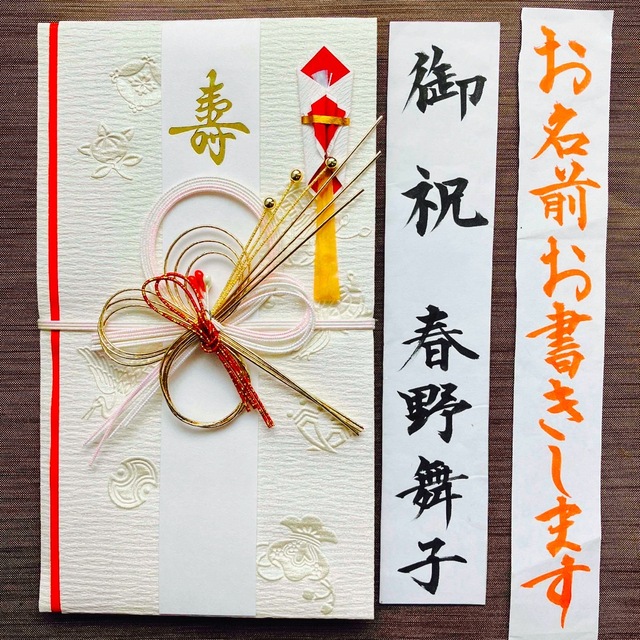 寿
御祝 春野舞子
お名前お書きします